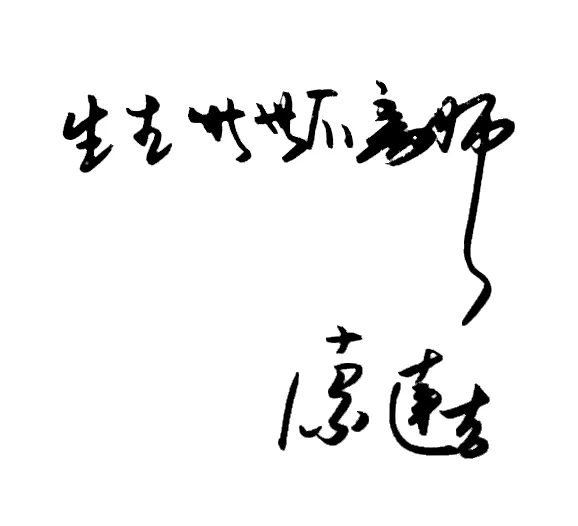 生生世世不离师
索達吉